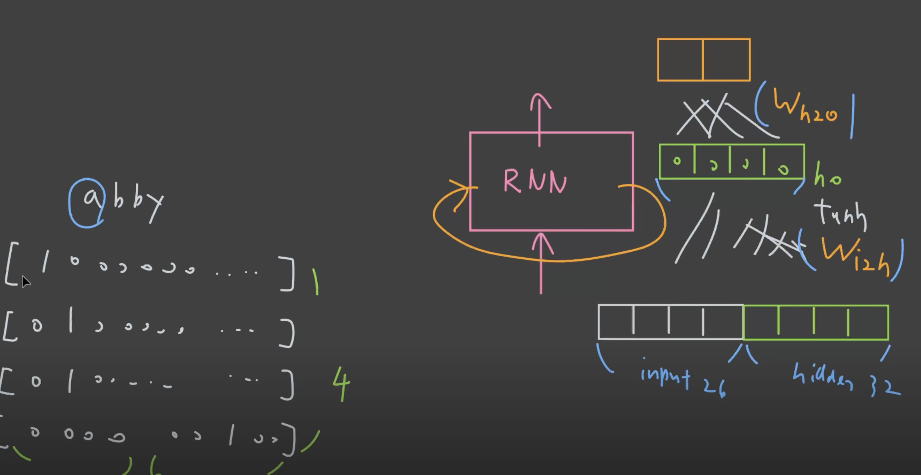 abby
[ 1 0 0 0 0 0 0 .... ] 1
[ 0 1 , 0 0 , , ... ]
[ 0 1 0 ..... ... ] 4
[ 0 0 0 0 0 0 1 0 0 ]
RNN
(Wh2o)
0 0 0 0 h0
tanh
(Wi2h)
input 26
hidden 32